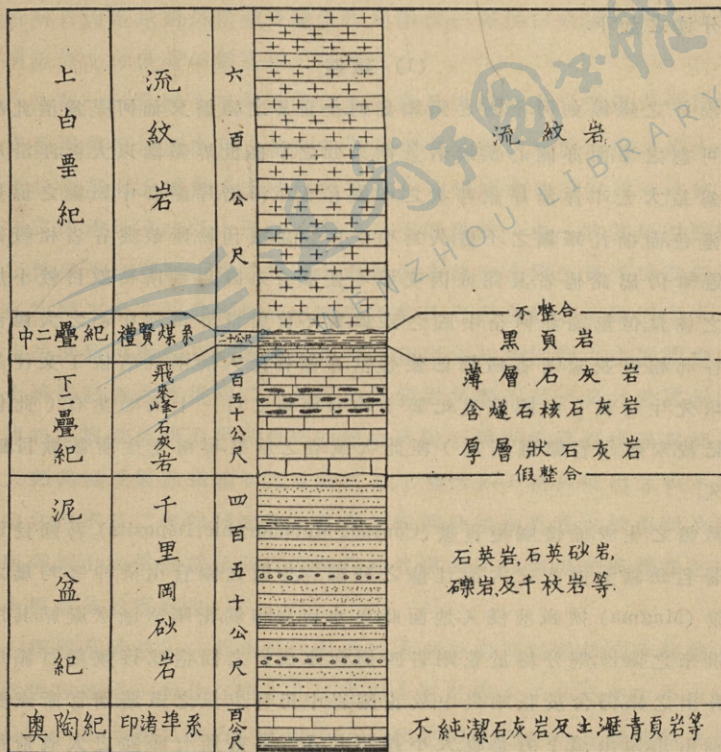 上白堊紀
流紋岩
六百公尺
流紋岩
不整合
中二疊紀
禮賢煤系
二十公尺
黑頁岩
下二疊紀
飛來峰石灰岩
二百五十公尺
薄層石灰岩
含燧石核石灰岩
厚層狀石灰岩
假整合
泥盆紀
千里岡砂岩
四百五十公尺
石英岩,石英砂岩,
礫岩,及千枚岩等.
奧陶紀
印渚埠系
百公尺
不純潔石灰岩及土瀝青頁岩等
WENZHOU LIBRARY